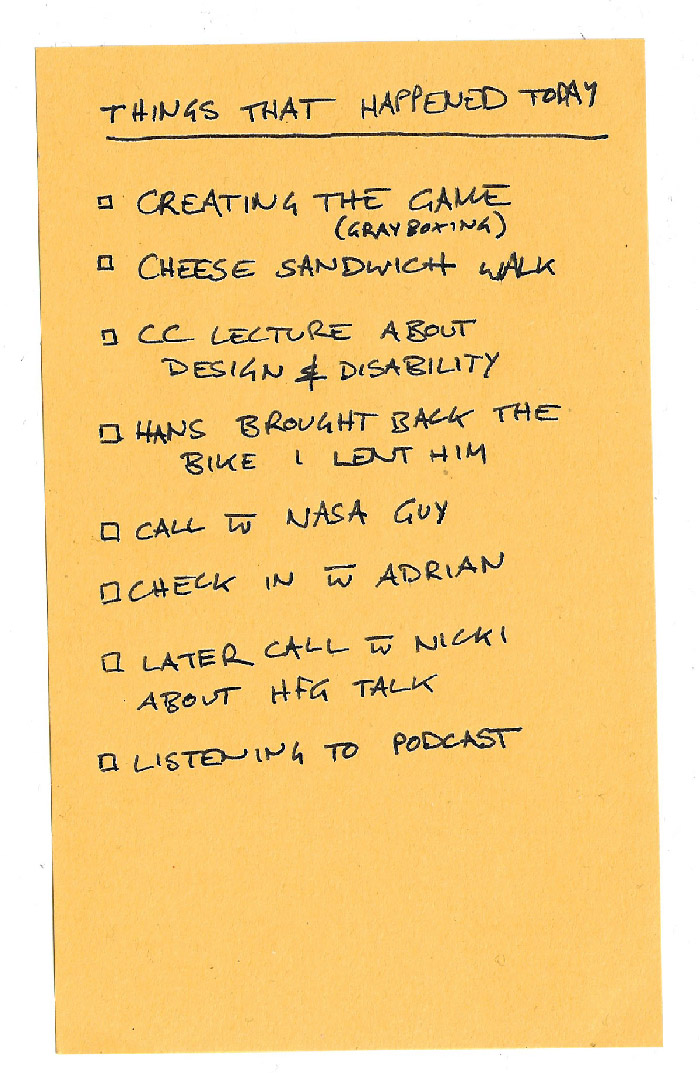 THINGS THAT HAPPENED TODAY
□ CREATING THE GAME
(GRAYBOXING)
□ CHEESE SANDWICH WALK
□ CC LECTURE ABOUT
DESIGN & DISABILITY
□ HANS BROUGHT BACK THE
BIKE I LENT HIM
□ CALL w̅ NASA GUY
□ CHECK IN w̅ ADRIAN
□ LATER CALL w̅ NICKI
ABOUT HFG TALK
□ LISTENING TO PODCAST